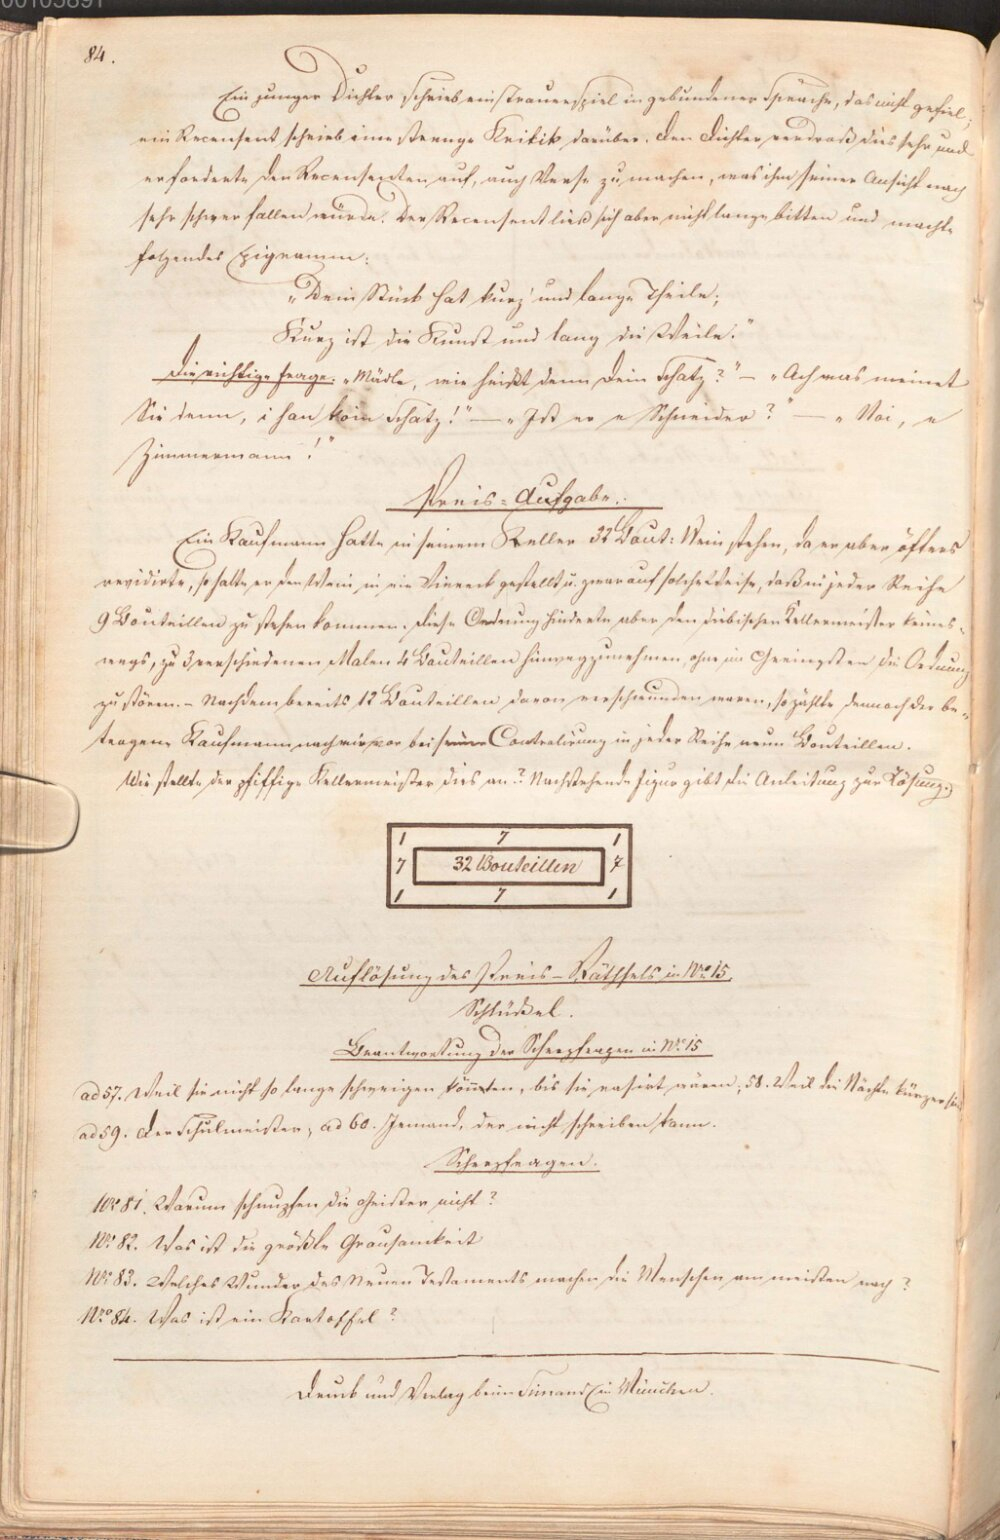 00105891
84.
Ein junger Dichter schrieb ein Trauerspiel in gebundener Sprache, das nicht gefiel;
ein Recensent schrieb eine strenge Kritik darüber. Den Dichter verdroß dies sehr und
er forderte den Recensenten auf, auch Verse zu machen, was ihm seiner Ansicht nach
sehr schwer fallen würde. Der Recensent ließ sich aber nicht lange bitten und machte
folgendes Epigramm:
„Dein Stück hat kurz' und lange Theile;
Kurz ist die Kunst und lang die Weile."
Die richtige Frage. „Mädle, wie heißt denn Dein Schatz?" — „Ach was meinet
Sie denn, i han koin Schatz!" — „Ist er e Schneider?" — „Noi, e
Zimmermann!"
Preis-Aufgabe.
Ein Kaufmann hatte in seinem Keller 32 Bout: Wein stehen, da er aber öfters
revidirte, so hatte er den Wein in ein Viereck gestellt u. zwar auf solche Weise, daß in jeder Reihe
9 Bouteillen zu stehen kommen. Diese Ordnung hinderte aber den diebischen Kellermeister keines-
wegs, zu 3 verschiedenen Malen 4 Bouteillen hinwegzunehmen, ohne im Geringsten die Ordnung
zu stören. – Nachdem bereits 12 Bouteillen davon verschwunden waren, so zählte dennoch der be-
trogene Kaufmann nach wie vor bei seiner Controlirung in jeder Reihe neun Bouteillen.
Wie stellte der pfiffige Kellermeister dies an? Nachstehende Figur gibt die Anleitung zur Lösung.
1 7 1
7 32 Bouteillen 7
1 7 1
Auflösung des Preis-Räthsels in Nro 15.
Schlüßel.
Beantwortung der Scherzfragen in Nro 15
ad 57. Weil sie nicht so lange schweigen könnten, bis sie rasirt wären; 58. Weil die Nächte kürzer sind
ad 59. Der Schulmeister; ad 60. Jemand, der nicht schreiben kann.
Scherzfragen.
Nro 81. Warum schnupfen die Geister nicht?
Nro 82. Was ist die größte Grausamkeit
Nro 83. Welches Wunder des Neuen Testaments machen die Menschen am meisten nach?
Nro 84. Was ist ein Kartoffel?
Druck und Verlag beim in München.